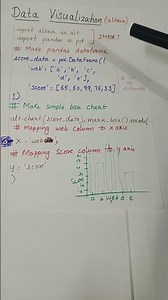 Data Visualization (altair)
import altair as alt
import pandas as pd
# Make pandas dataframe
score_data = pd.DataFrame({
'web': ['a', 'b', 'c',
'd', 'e'],
'score': [65, 50, 99, 75, 33]
1)
# Make simple bar chart
alt.chart(score_data).mark_bar().encode(
# Mapping web column to x axis
x = 'web',
# Mapping Score column to y axis
y = 'score'
)